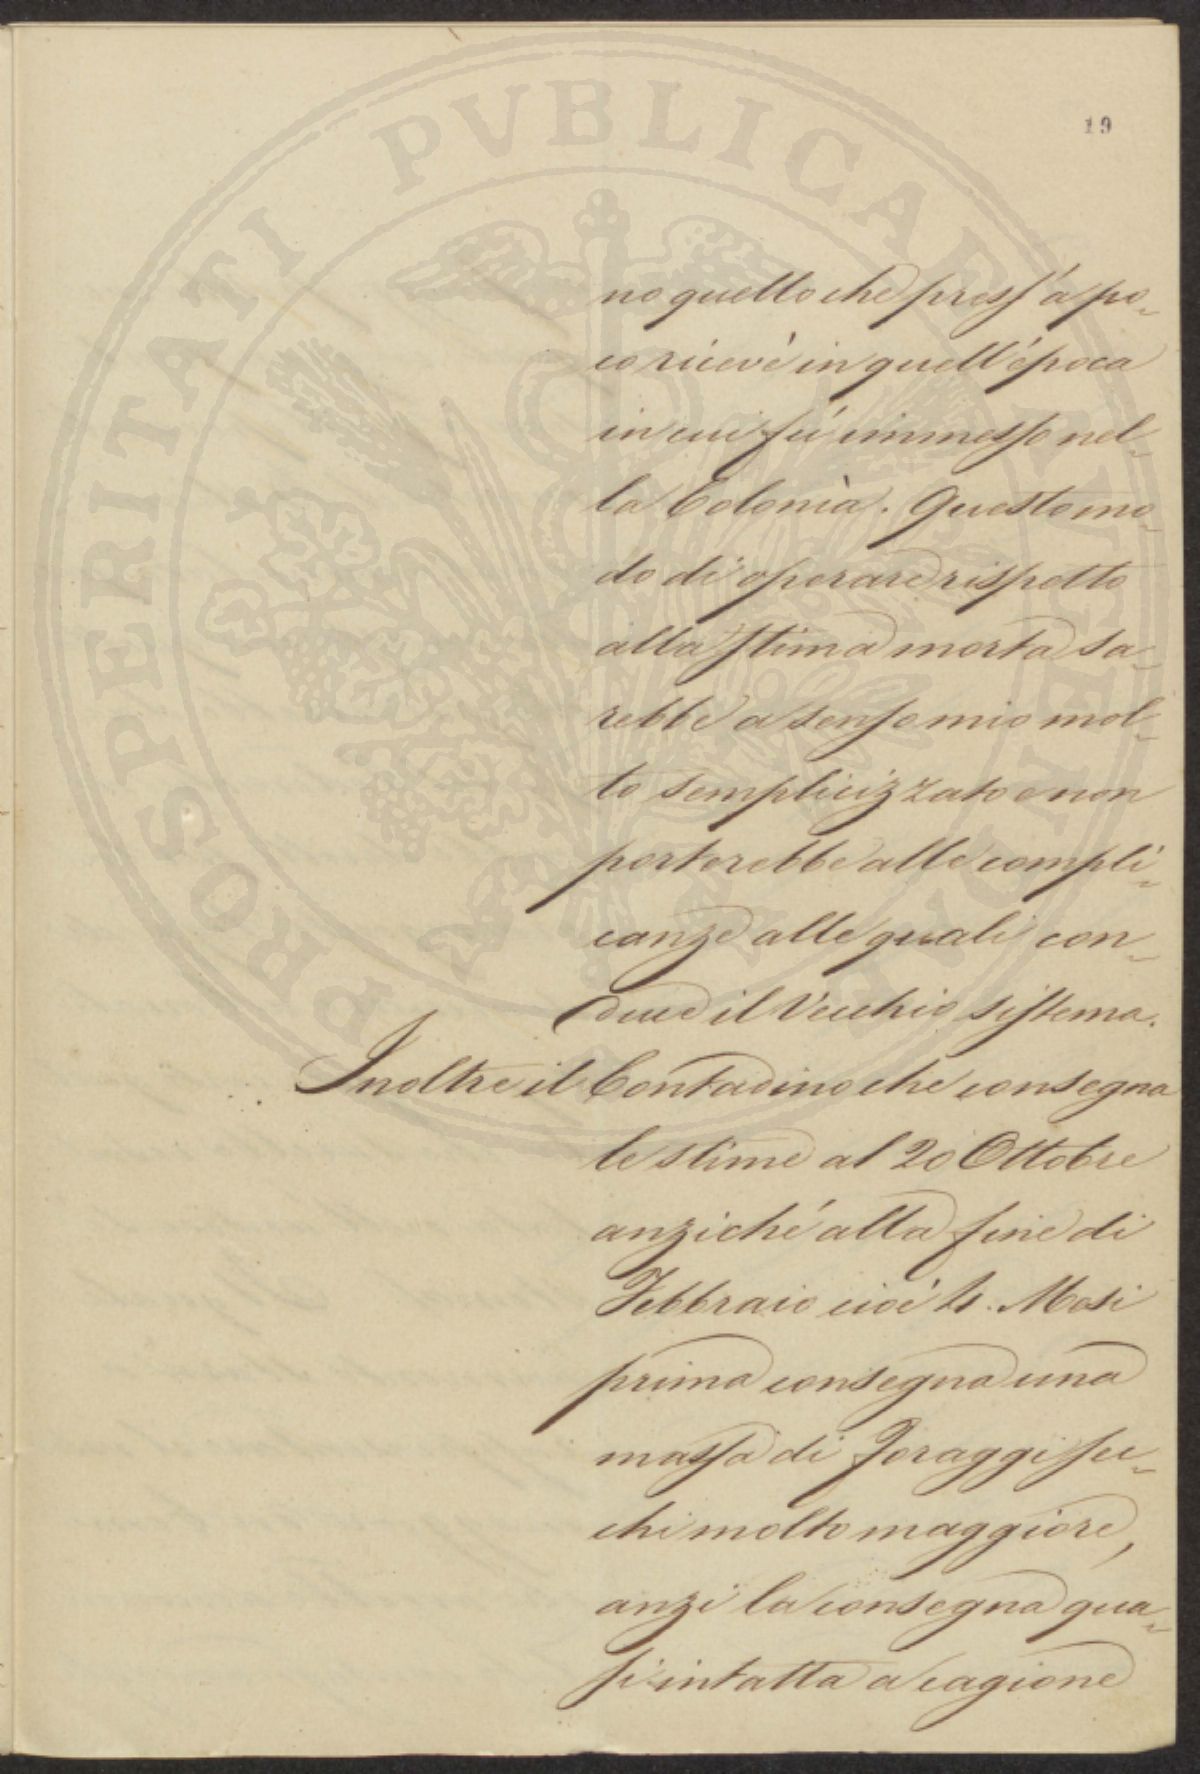 19
no quello che press'a po-
co ricevè in quell'época
in cui fú immesso nel-
la Colonia. Questo mo-
do di operare rispetto
alla stima morta sa-
rebbe a senso mio mol-
to semplicizzato e non
porterebbe alle compli-
canze alle quali con-
duce il Vecchio sistema.
Inoltre il Contadino che consegna
le stime al 20 Ottobre
anziché alla fine di
Febbraio cioè 4. Mesi
prima consegna una
massa di Foraggi sec-
chi molto maggiore,
anzi la consegna qua-
si intatta a cagione
PROSPERITATI PVBLICAE AVGENDAE